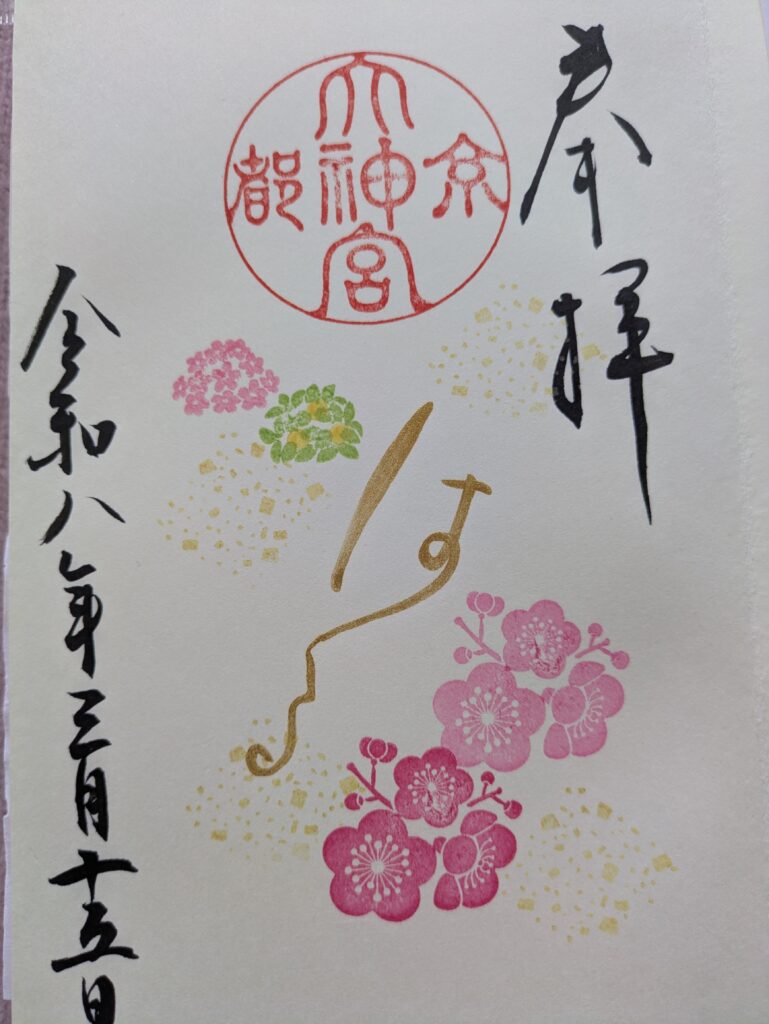 奉拝
京都
大神宮
はる
令和八年三月十五日